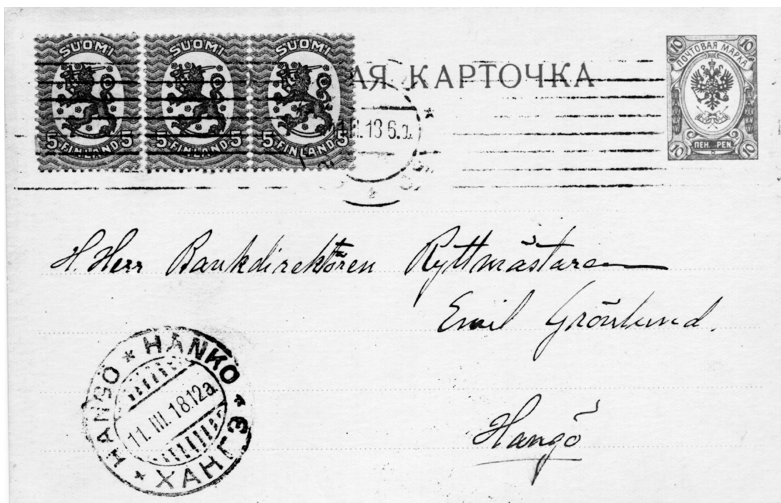 SUOMI SUOMI SUOMI
5 FINLAND 5 5 FINLAND 5 5 FINLAND 5
АЯ КАРТОЧКА
10 ПОЧТОВАЯ МАРКА 10
10 ПЕН. PEN. 10
H. Herr Bankdirektören Ryttmästaren
Emil Grönlund.
HANGÖ * HANKO * ХАНГЭ *
11. III. 18.12a
Hangö